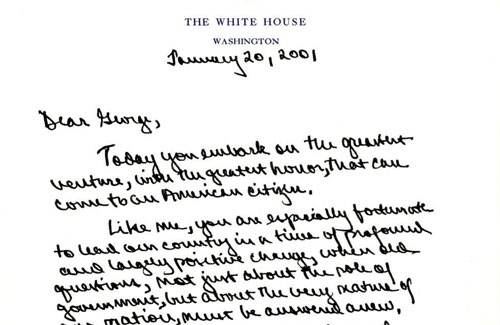 THE WHITE HOUSE
WASHINGTON
January 20, 2001
Dear George,
Today you embark on the greatest
venture, with the greatest honor, that can
come to an American citizen.
Like me, you are especially fortunate
to lead our country in a time of profound
and largely positive change, when old
questions, not just about the role of
government, but about the very nature of
our nation, must be answered anew.